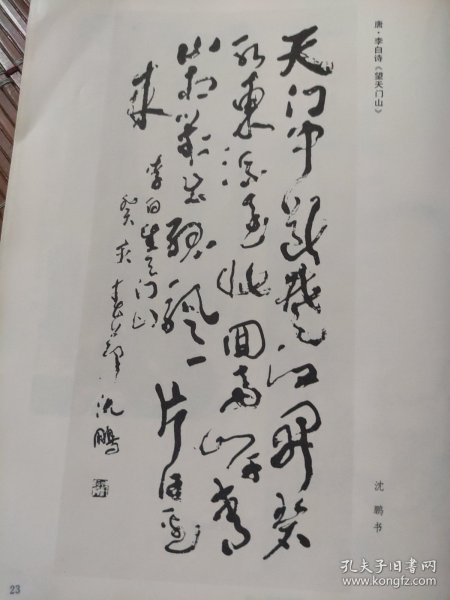 唐·李白诗《望天门山》
天门中断楚江开碧
水東流至此回两岸青
山相對出孤帆一片日边
来
李白望天门山
癸亥春节 沈鹏
沈鹏书
23
孔夫子旧书网
www.kongfz.com